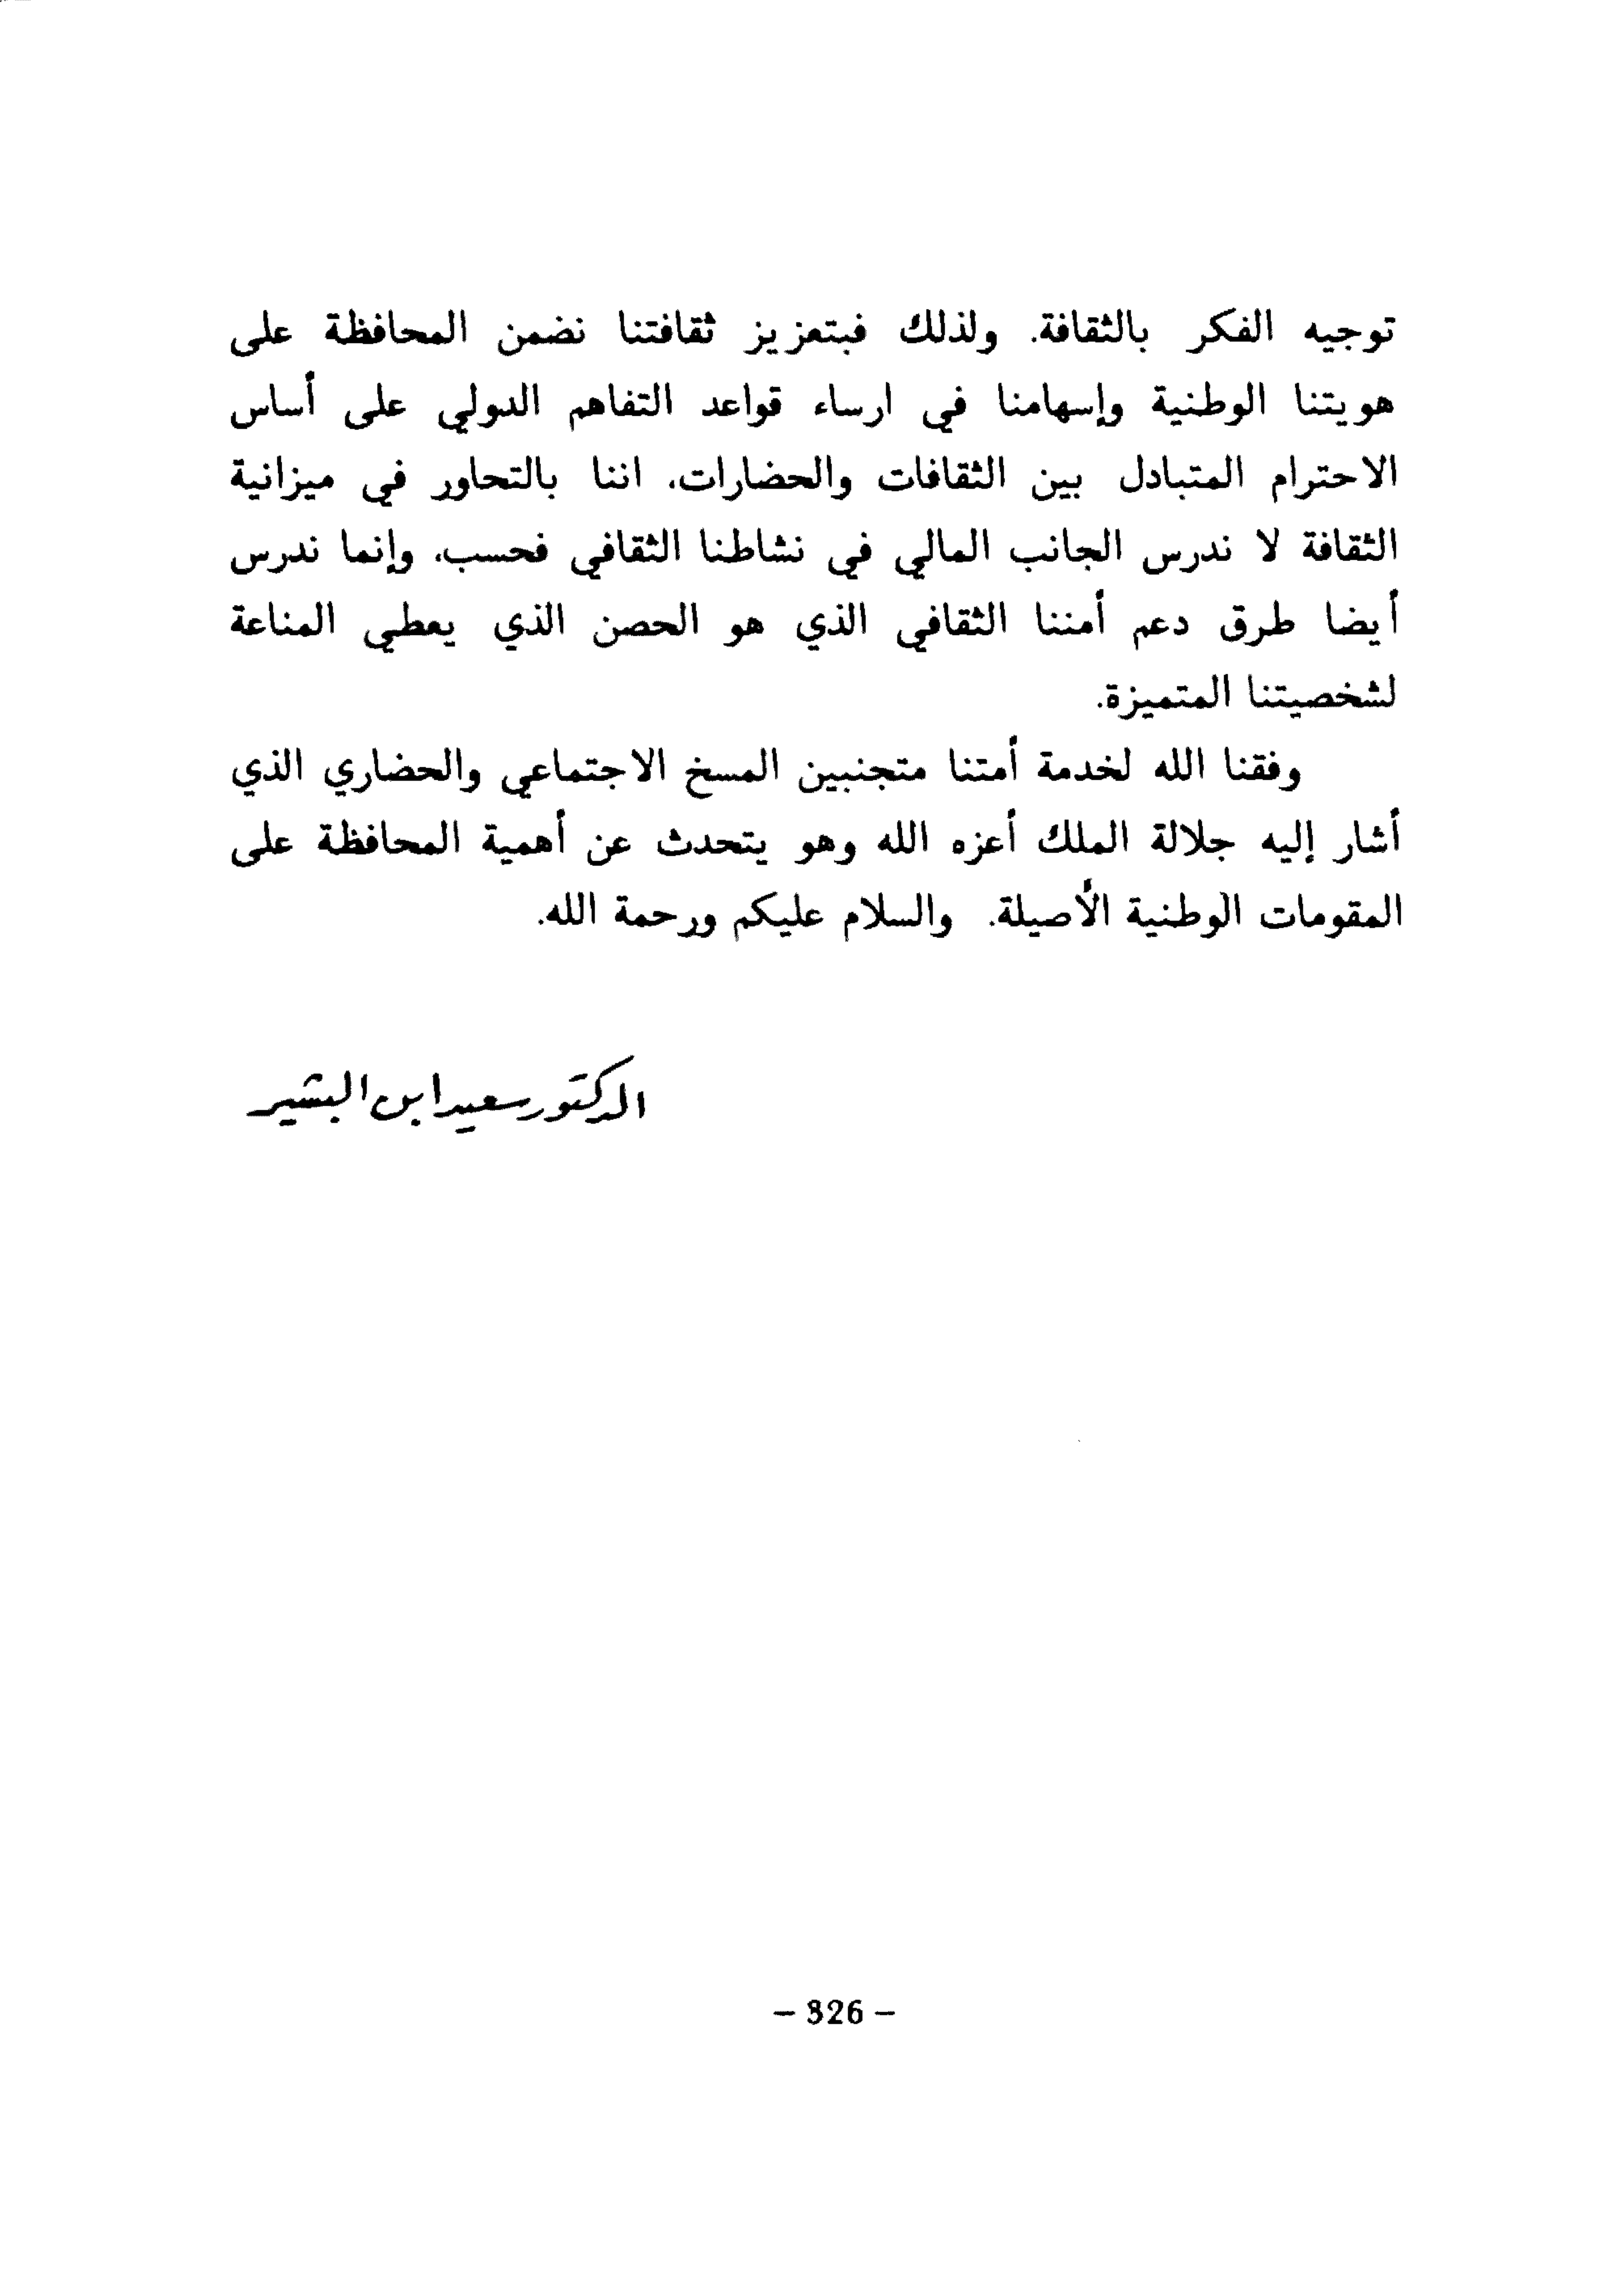 توجيه الفكر بالثقافة. ولذلك فبتعزيز ثقافتنا نضمن المحافظة على
هويتنا الوطنية وإسهامنا في ارساء قواعد التفاهم الدولي على أساس
الاحترام المتبادل بين الثقافات والحضارات، اننا بالتحاور في ميزانية
الثقافة لا ندرس الجانب المالي في نشاطنا الثقافي فحسب، وإنما ندرس
أيضا طرق دعم أمننا الثقافي الذي هو الحصن الذي يعطي المناعة
لشخصيتنا المتميزة.
وفقنا الله لخدمة أمتنا متجنبين المسخ الاجتماعي والحضاري الذي
أشار إليه جلالة الملك أعزه الله وهو يتحدث عن أهمية المحافظة على
المقومات الوطنية الأصيلة. والسلام عليكم ورحمة الله.
الدكتور سعيد ابن البشير
– 326 –